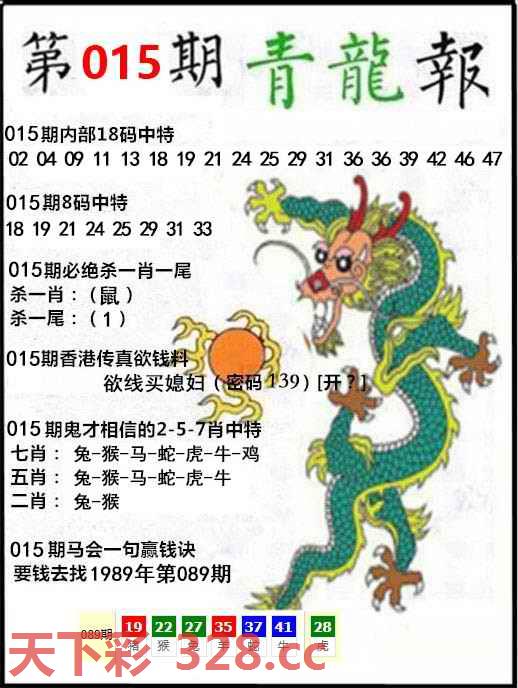 第015期青龍報
015期内部18码中特
02 04 09 11 13 18 19 21 24 25 29 31 36 36 39 42 46 47
015期8码中特
18 19 21 24 25 29 31 33
015期必绝杀一肖一尾
杀一肖：（鼠）
杀一尾：（1）
015期香港传真欲钱料
欲线买媳妇（密码139）[开？]
015期鬼才相信的2-5-7肖中特
七肖：兔-猴-马-蛇-虎-牛-鸡
五肖：兔-猴-马-蛇-虎-牛
二肖：兔-猴
015期马会一句赢钱诀
要钱去找1989年第089期
089期 19 22 27 35 37 41 28
猪 猴 兔 羊 蛇 牛 虎
天下彩 328.cc